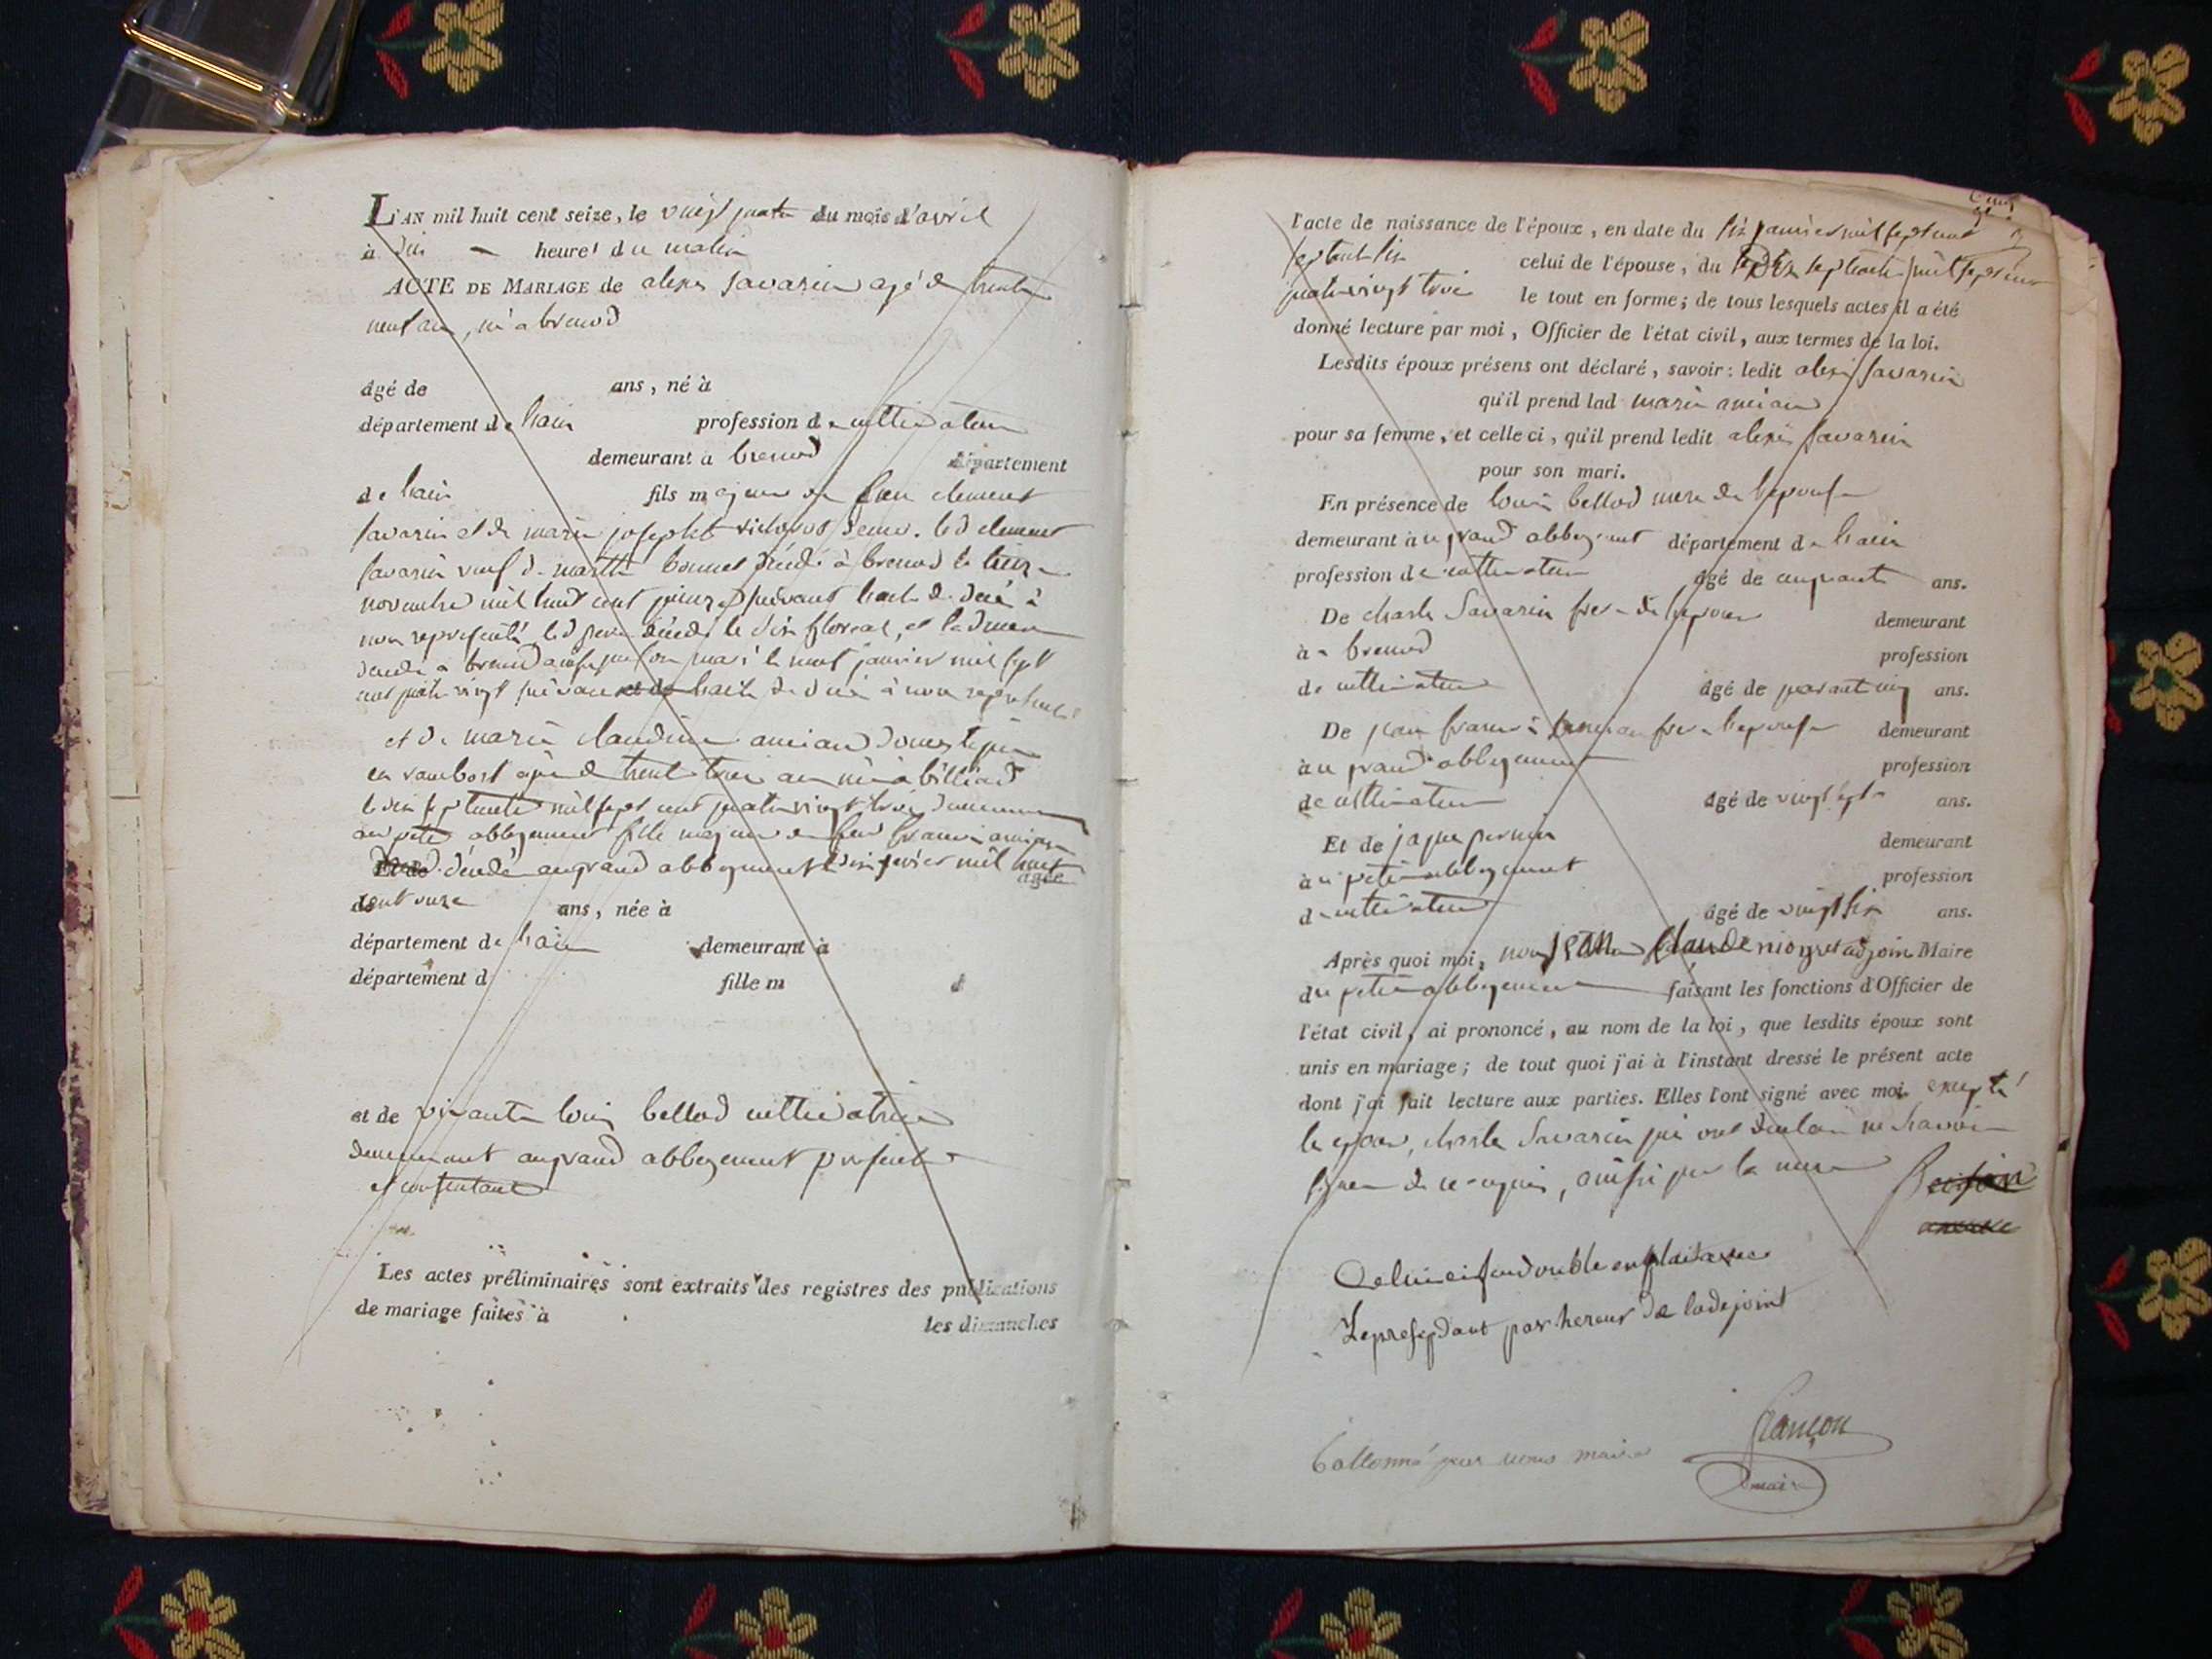 L'AN mil huit cent seize, le vingt quatre du mois d'avril
à dix heures du matin
ACTE DE MARIAGE de alexis savarin agé de trente
neuf ans, né a brenod
âgé de ans, né à
département de lain profession de cultivateur
demeurant à brenod département
de lain fils majeur de feu clement
savarin et de marie josephte decu. led clement
savarin veuf de marthe bonnet décédé à brenod le
novembre mil huit cent quinze suivant lacte de décé à
nou représenté led décédé le dix floréal, et lad
décédé a brenod mari le janvier mil sept
cent quatre vingt suivant lacte de décé à nou représenté
et de marie claudine ancian domestique
agée de trente trois ans née à billiad
le dix septembre mil sept cent quatre vingt trois demeurant
au petit abbergement fille majeure de feu françois ancian
décédé au grand abbergement le dix janvier mil huit
cent onze agée
ans, née à
département de lain demeurant à
département d fille m d
et de vivante louise bellod cultivatrice
demeurant au grand abbergement présente
et consentante
Les actes préliminaires sont extraits des registres des publications
de mariage faites à les dimanches
l'acte de naissance de l'époux, en date du six janvier mil sept cent
septante six celui de l'épouse, du dix septembre mil sept cent
quatre vingt trois le tout en forme; de tous lesquels actes il a été
donné lecture par moi, Officier de l'état civil, aux termes de la loi.
Lesdits époux présens ont déclaré, savoir: ledit alexis savarin
qu'il prend lad marie ancian
pour sa femme, et celle ci, qu'il prend ledit alexis savarin
pour son mari.
En présence de louise bellod mere de lepouse
demeurant à u grand abbergement département de lain
profession de cultivateur âgé de cinquante ans.
De charle Savarin frere de lepoux demeurant
à brenod profession
de cultivateur âgé de quarant cinq ans.
De jean françois ancian frere lepouse demeurant
à u grand abbergement profession
de cultivateur âgé de vingt sept ans.
Et de jaque demeurant
à u petit abbergement profession
de cultivateur âgé de vingt six ans.
Après quoi moi, nous jean claude adjoin Maire
du petit abbergement faisant les fonctions d'Officier de
l'état civil, ai prononcé, au nom de la loi, que lesdits époux sont
unis en mariage; de tout quoi j'ai à l'instant dressé le présent acte
dont j'ai fait lecture aux parties. Elles l'ont signé avec moi excepté
le epoux, charle Savarin qui ont declaré ne savoir
signer de ce requis, ainsi que la mere
Celuici fau double
Le par hereur de ladejoint
Battonné par nous maire
françon
maire